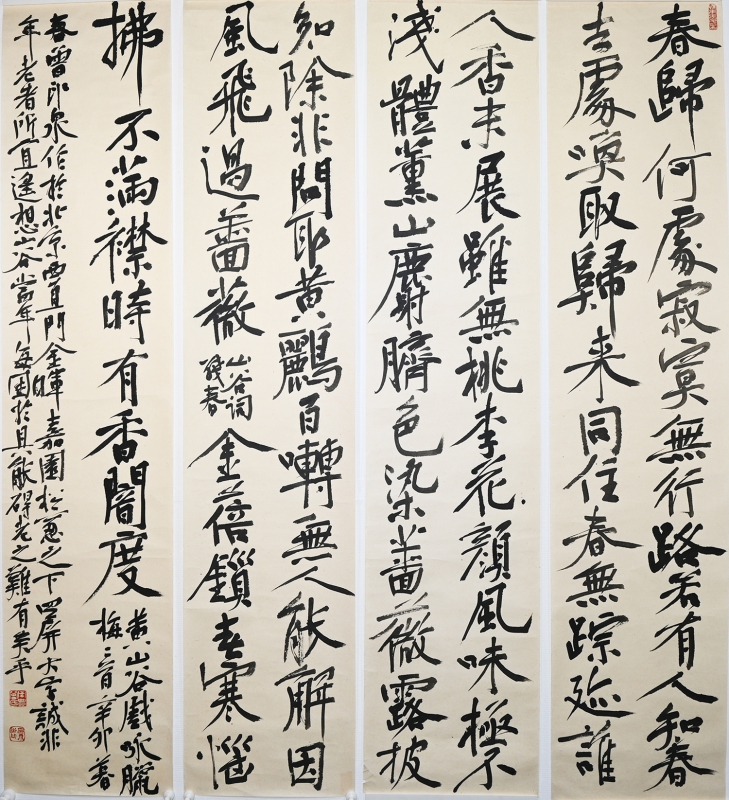 春歸何處寂寞無行路若有人知春
去處喚取歸来同住春無踪迹誰
人香未展雖無桃李花顏風味極不
淺體薰山麝臍色染薔薇露披
知除非問取黃鸝百囀無人能解因
風飛過薔薇
山谷词
殘春
金蓓鎖春寒惱
拂不滿襟時有香闇度
黃山谷戲詠臘
梅二首辛卯暮
春雷印泉作於北京西直門金暉嘉園松窓之下四屏大字誠非
年老者所宜遙想山谷當年每困於具能碍老之難有矣乎